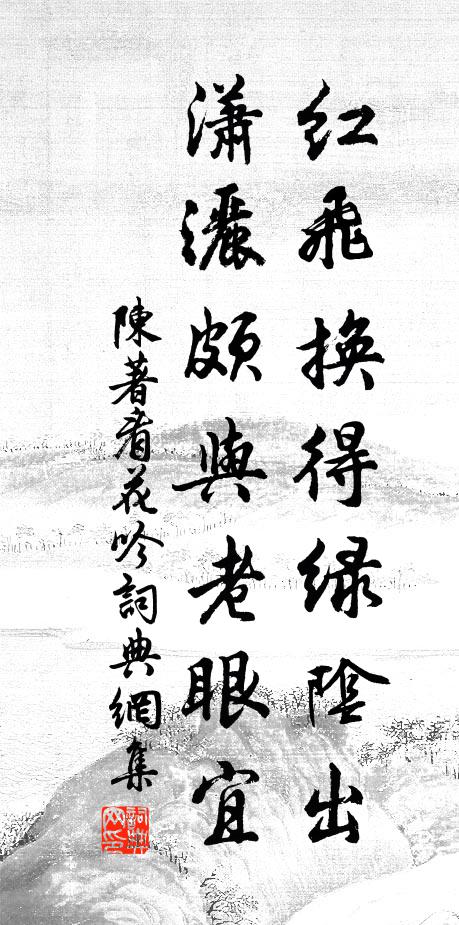 红飛換得緑陰出
瀟灑頗與老眼宜
陳著看花吟詞典網集